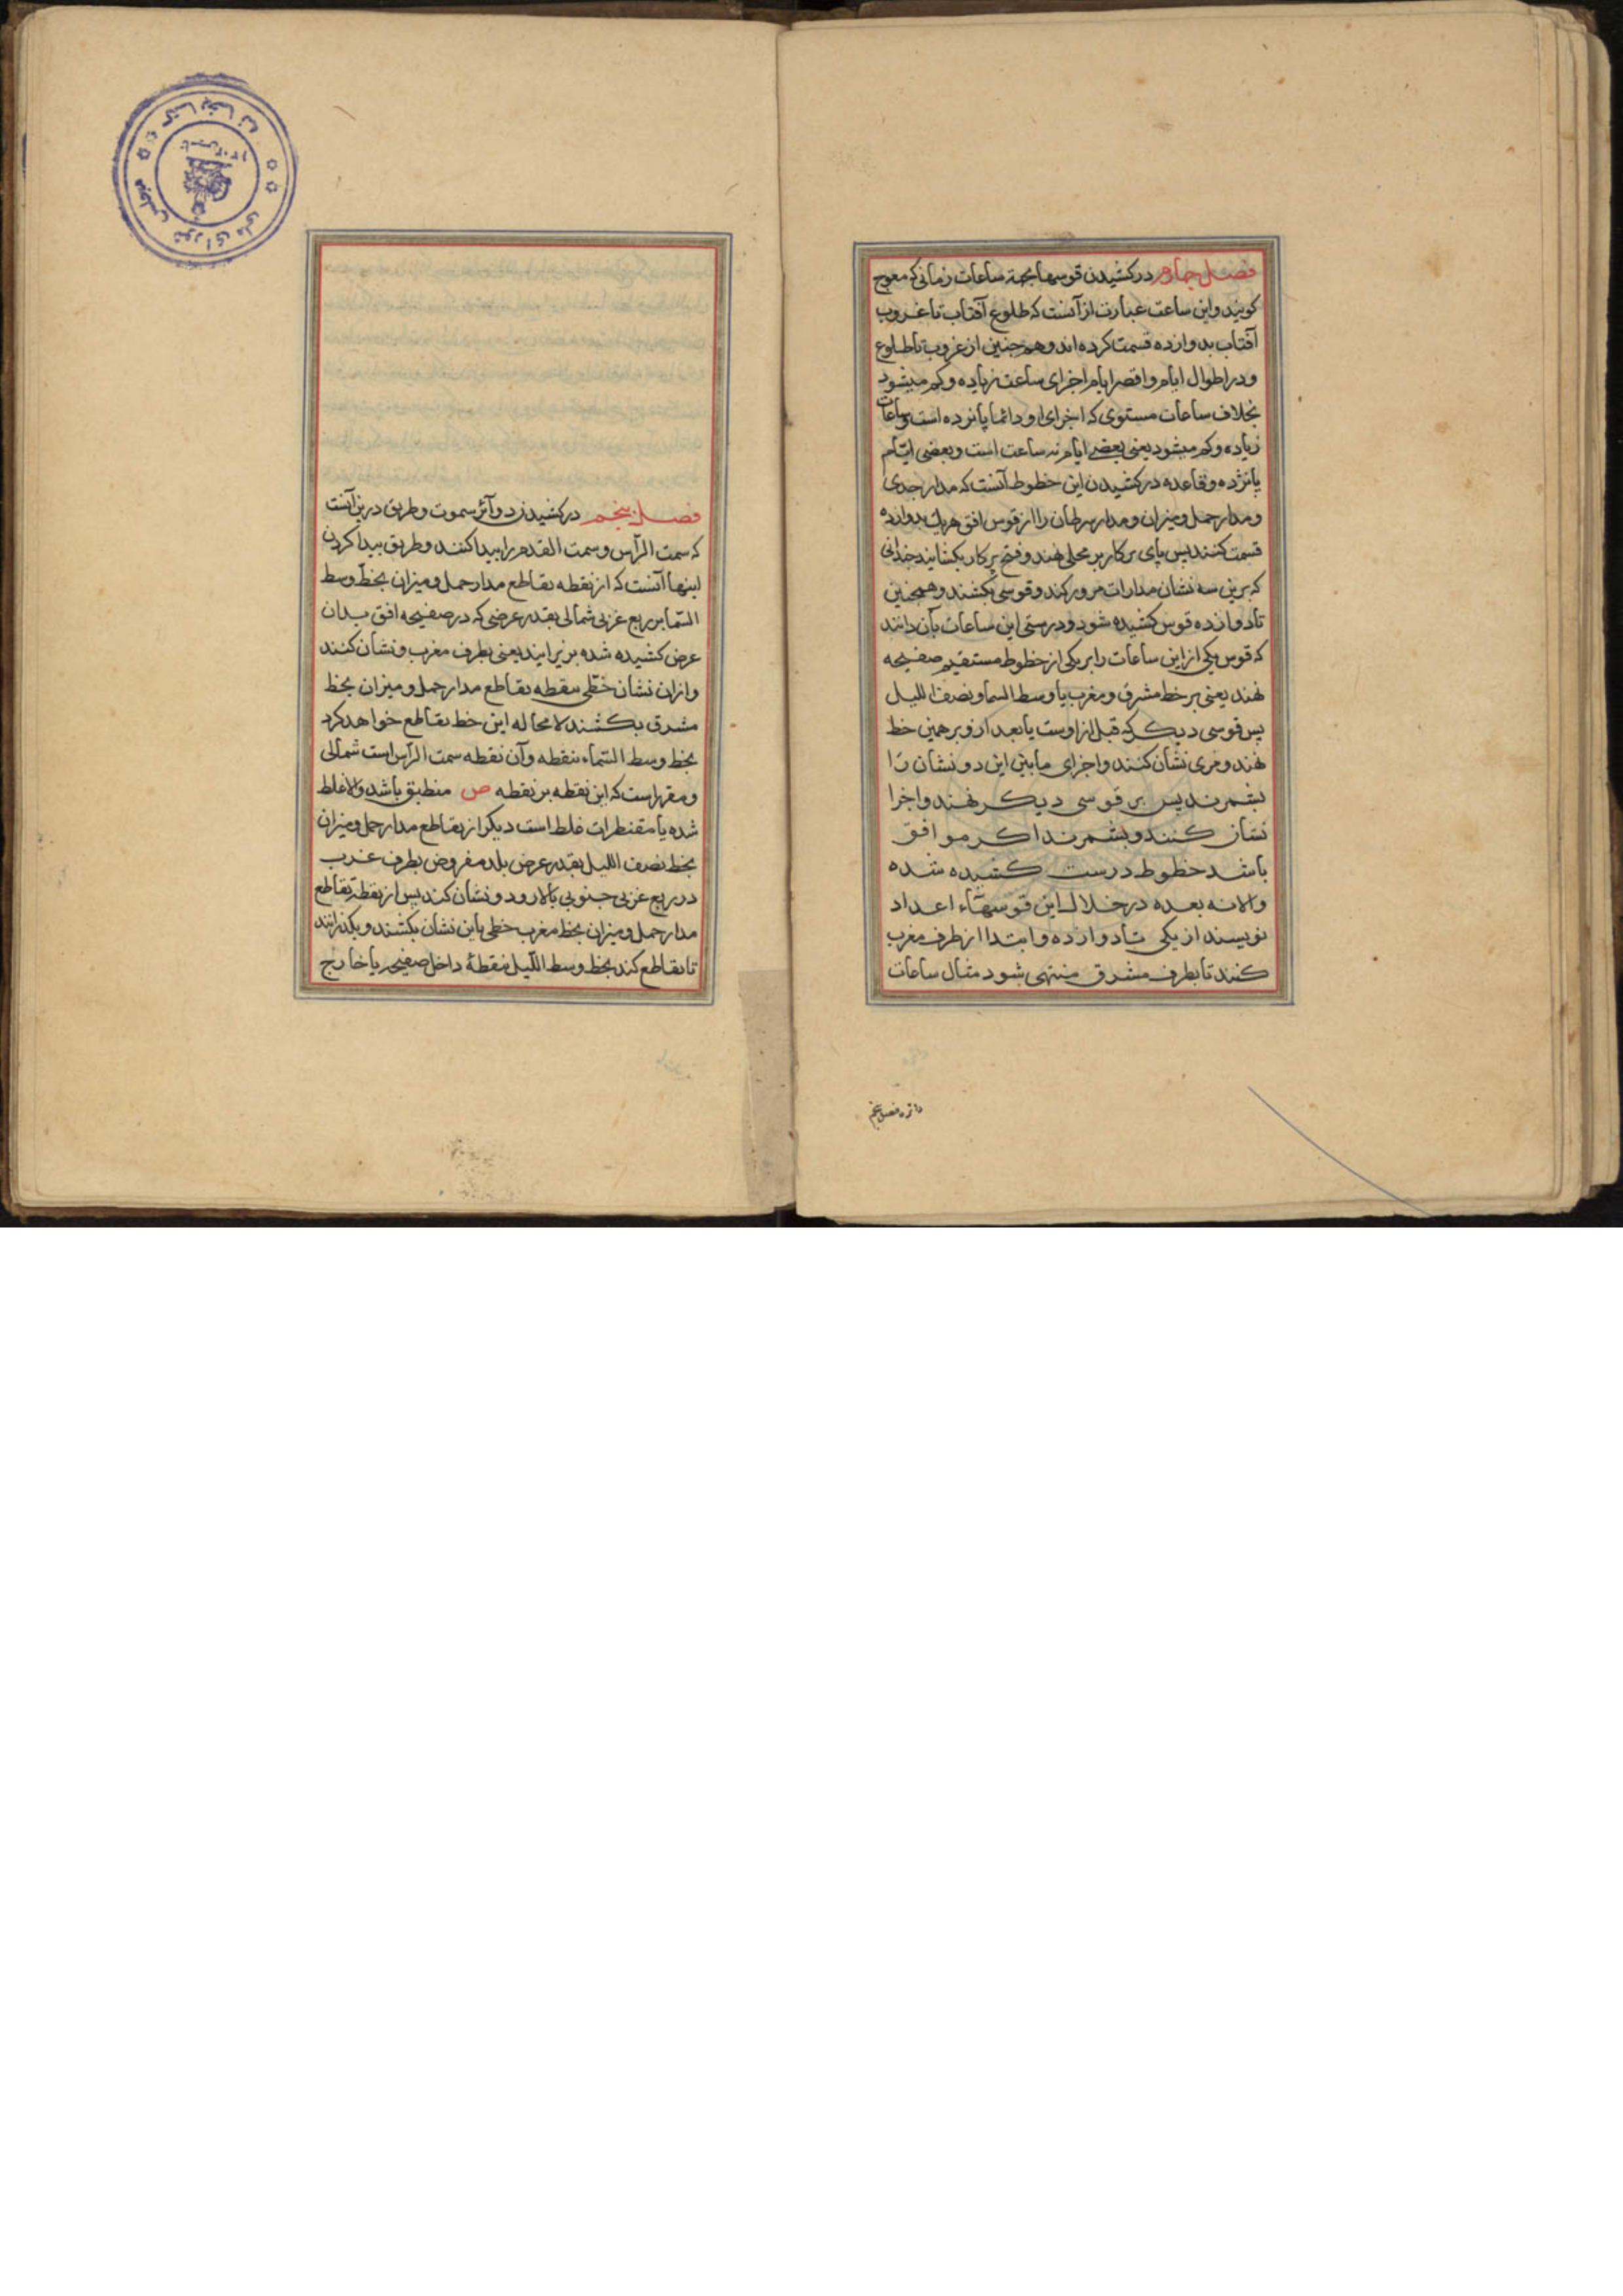 فصل چهارم در کشیدن قوسها بجهة ساعات زمانی که معوج
کویند و این ساعت عبارت از آنست که طلوع آفتاب تا غروب
آفتاب بدوازده قسمت کرده اند و همچنین از غروب تا طلوع
و در اطوال ایام و اقصر ایام اجزای ساعت زیاده و کم میشود
بخلاف ساعات مستوی که اجزای او دائما پانزده است و ساعات
زیاده و کم میشود یعنی بعضی ایام نه ساعت است و بعضی ایام
پانزده و قاعده در کشیدن این خطوط آنست که مدار جدی
و مدار حمل و میزان و مدار سرطان را از قوس افق هریک بدوازده
قسمت کنند پس پای پرکار بر محلی نهند و فتح پرکار بکشایند چندانی
که برین سه نشان مدارات مرور کند و قوسی بکشند و همچنین
تا دوازده قوس کشیده شود و درستی این ساعات بآن دانند
که قوس یکی از این ساعات را بر یکی از خطوط مستقیم صفیحه
نهند یعنی بر خط مشرق و مغرب یا وسط السما و نصف اللیل
پس قوسی دیکر که قبل از اوست یا بعد از و بر همین خط
نهند و مری نشان کنند و اجزای مابین این دو نشان را
بشمرند پس بر قوسی دیکر نهند و اجزا
نشان کنند و بشمرند اکر موافق
باشد خطوط درست کشیده شده
والا نه بعده در خلال این قوسهاء اعداد
نویسند از یکی تا دوازده و ابتدا از طرف مغرب
کنند تا بطرف مشرق منتهی شود مثال ساعات
دائره فصل پنجم
فصل پنجم در کشیدن دوآئر سموت و طریق درین آنست
که سمت الرأس و سمت القدم را پیدا کنند و طریق پیدا کردن
اینها آنست که از نقطه تقاطع مدار حمل و میزان بخط وسط
السما بر ربع غربی شمالی بقدر عرضی که در صفیحه افق بدان
عرض کشیده شده بزیر ایند یعنی بطرف مغرب و نشان کنند
و ازان نشان خطی بنقطه تقاطع مدار حمل و میزان بخط
مشرق بکشند لامحاله این خط تقاطع خواهد کرد
بخط وسط السماء بنقطه و آن نقطه سمت الرأس است شمالی
و مقرر است که این نقطه بر نقطه ص منطبق باشد والا غلط
شده یا مقنطرات غلط است دیکر از تقاطع مدار حمل و میزان
بخط نصف اللیل بقدر عرض بلد مفروض بطرف غرب
در ربع غربی جنوبی بالا رود و نشان کند پس از نقطه تقاطع
مدار حمل و میزان بخط مغرب خطی باین نشان بکشند و بکذرانند
تا تقاطع کند بخط وسط اللیل بنقطهٔ داخل صفیحه یا خارج
کتابخانه
مجلس شورای ملی